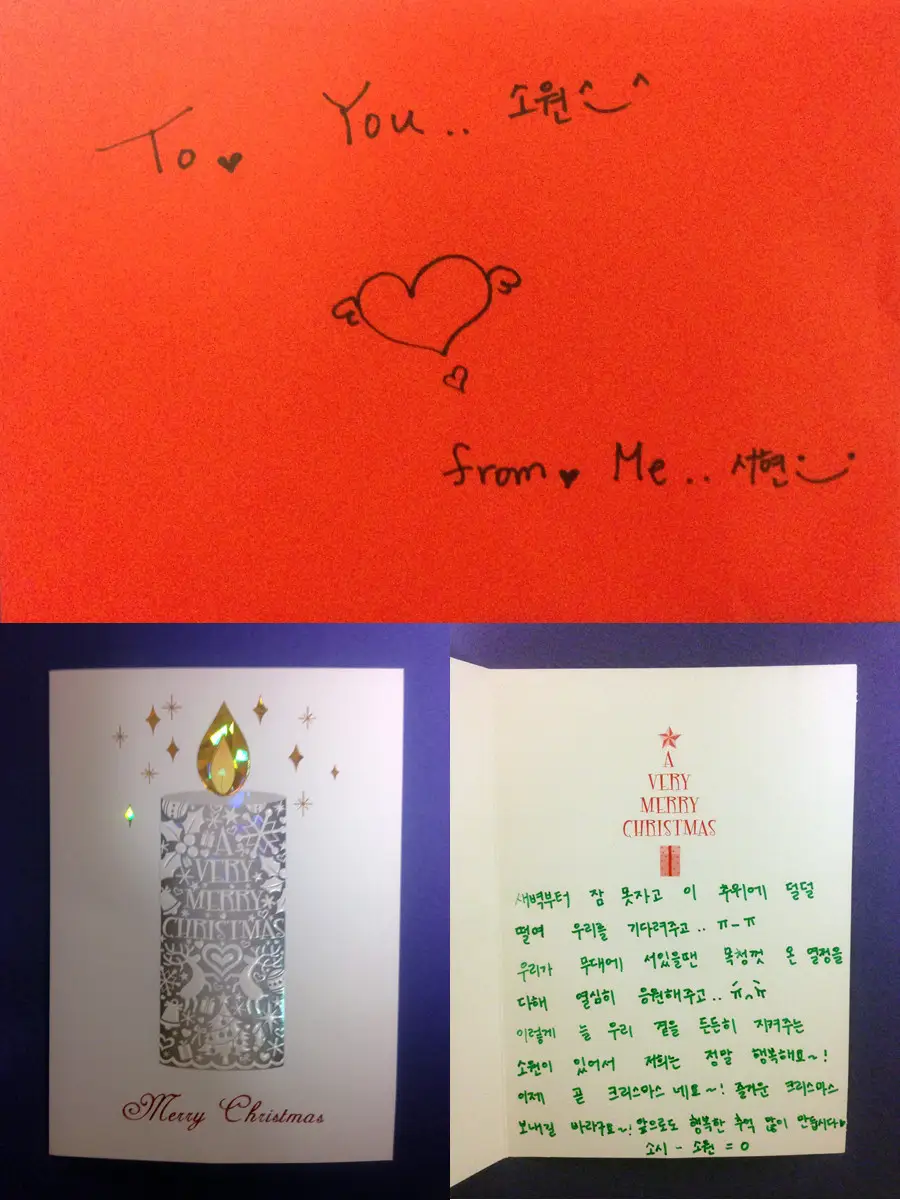 To♥ You.. 소원^‿^
from♥ Me.. 서현
A
VERY
MERRY
CHRISTMAS
Merry Christmas
A
VERY
MERRY
CHRISTMAS
새벽부터 잠 못자고 이 추위에 덜덜
떨며 우리를 기다려주고.. ㅠ_ㅠ
우리가 무대에 서있을땐 목청껏 온 열정을
다해 열심히 응원해주고.. ㅠ^ㅠ
이렇게 늘 우리 곁을 든든히 지켜주는
소원이 있어서 저희는 정말 행복해요~!
이제 곧 크리스마스 네요~! 즐거운 크리스마스
보내길 바라구요~! 앞으로도 행복한 추억 많이 만듭시다♥
소시 - 소원 = 0